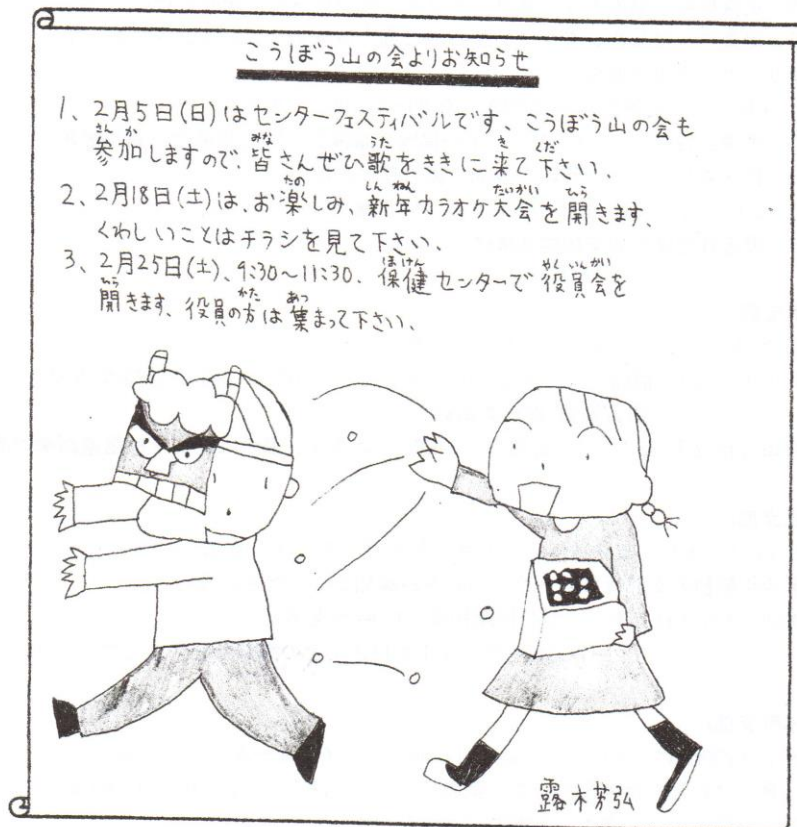 こうぼう山の会よりお知らせ
1、2月5日(日)はセンターフェスティバルです、こうぼう山の会も
参加しますので、皆さんぜひ歌をききに来て下さい、
2、2月18日(土)は、お楽しみ、新年カラオケ大会を開きます、
くわしいことはチラシを見て下さい、
3、2月25日(土)、9:30〜11:30、保健センターで役員会を
開きます、役員の方は集まって下さい、
露木芳弘